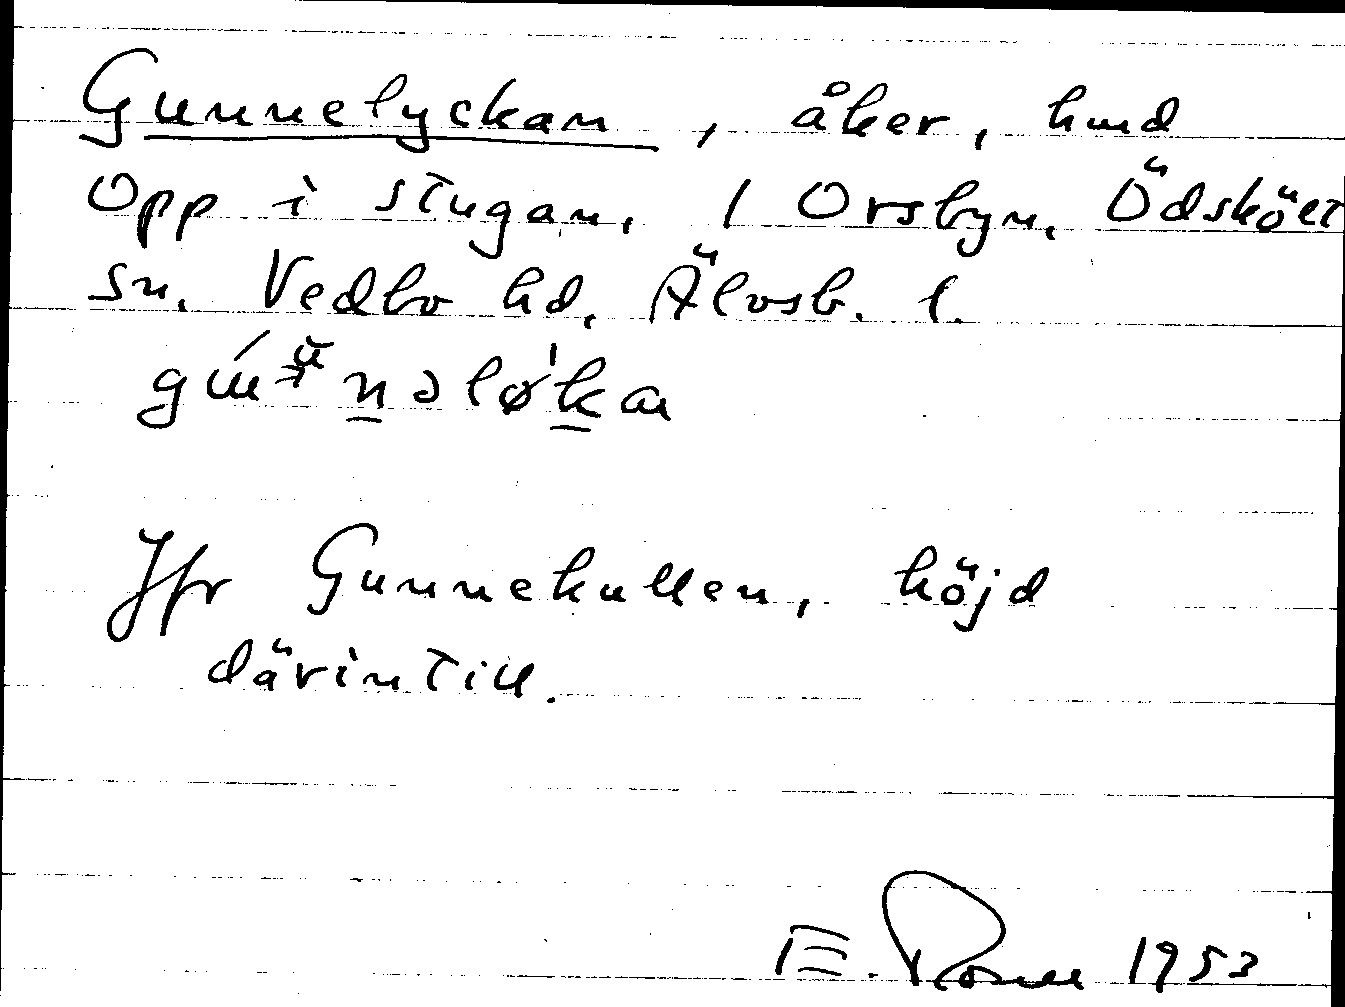 Gunnelyckan, åker, hmd
Opp i stugan, 1 Orsbyn, Ödsköлt
sn. Vedbo hd, Älvsb. l.
Jfr Gunnekullen, höjd
därintill.
E. 1953